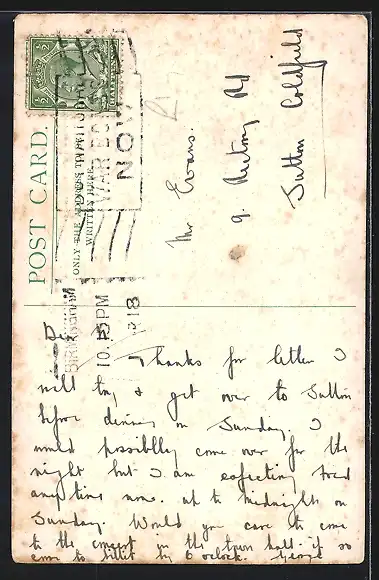 POST CARD.
ONLY THE ADDRESS TO BE
WRITTEN HERE
½ ½
HALFPENNY
WAR BONDS
NOW
BIRMINGHAM
10. PM
18
Mr Evans.
9. Rectory Rd
Sutton Coldfield
Dear
Thanks for letter I
will try & get over to Sutton
before dinner on Sunday. I
would possiblly come over for the
night but I am expecting Fred
any time now. up to midnight on
Sunday. Would you care to come
to the concert in the town hall. if so
come to Hillit by 6 oclock. George